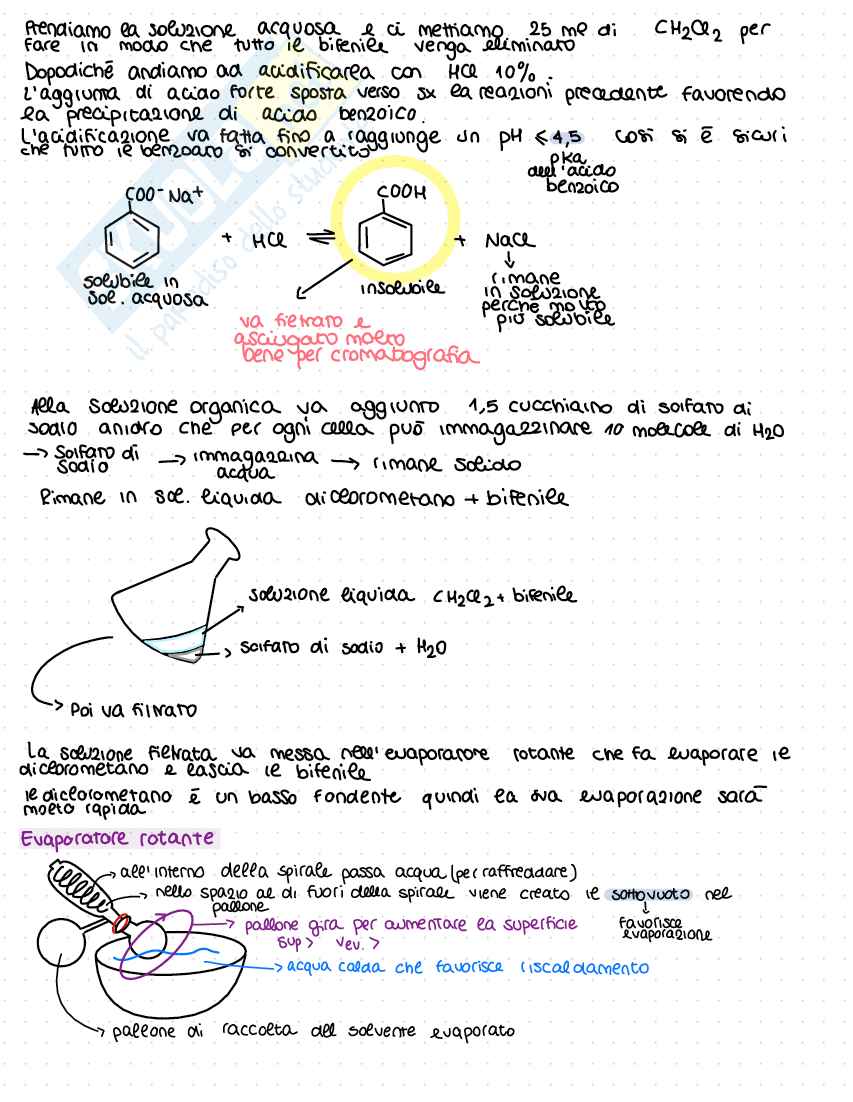 Prendiamo la soluzione acquosa e ci mettiamo 25 ml di CH2Cl2 per
fare in modo che tutto il bifenile venga eliminato
Dopodiché andiamo ad acidificarla con HCl 10%.
L'aggiunta di acido forte sposta verso sx la reazioni precedente favorendo
la precipitazione di acido benzoico.
L'acidificazione va fatta fino a raggiunge un pH ≤ 4,5 così si è sicuri
che tutto il benzoato si convertito
pka
dell'acido
benzoico
COO⁻Na⁺
COOH
+ HCl ⇌ + NaCl
solubile in
sol. acquosa
insolubile
rimane
in soluzione
perché molto
più solubile
va filtrato e
asciugato molto
bene per cromatografia
SKUOLA
il paradiso dello studente
Alla soluzione organica va aggiunto 1,5 cucchiaino di solfato di
sodio anidro che per ogni cella può immagazzinare 10 molecole di H2O
→ Solfato di
sodio
→ immagazzina
acqua
→ rimane solido
Rimane in sol. liquida diclorometano + bifenile
soluzione liquida CH2Cl2 + bifenile
solfato di sodio + H2O
Poi va filtrato
La soluzione filtrata va messa nell'evaporatore rotante che fa evaporare il
diclorometano e lascia il bifenile
il diclorometano è un basso fondente quindi la sua evaporazione sarà
molto rapida
Evaporatore rotante
all'interno della spirale passa acqua (per raffreddare)
nello spazio al di fuori della spirale viene creato il sottovuoto nel
pallone
favorisce
evaporazione
pallone gira per aumentare la superficie
sup > vel. >
acqua calda che favorisce riscaldamento
pallone di raccolta del solvente evaporato